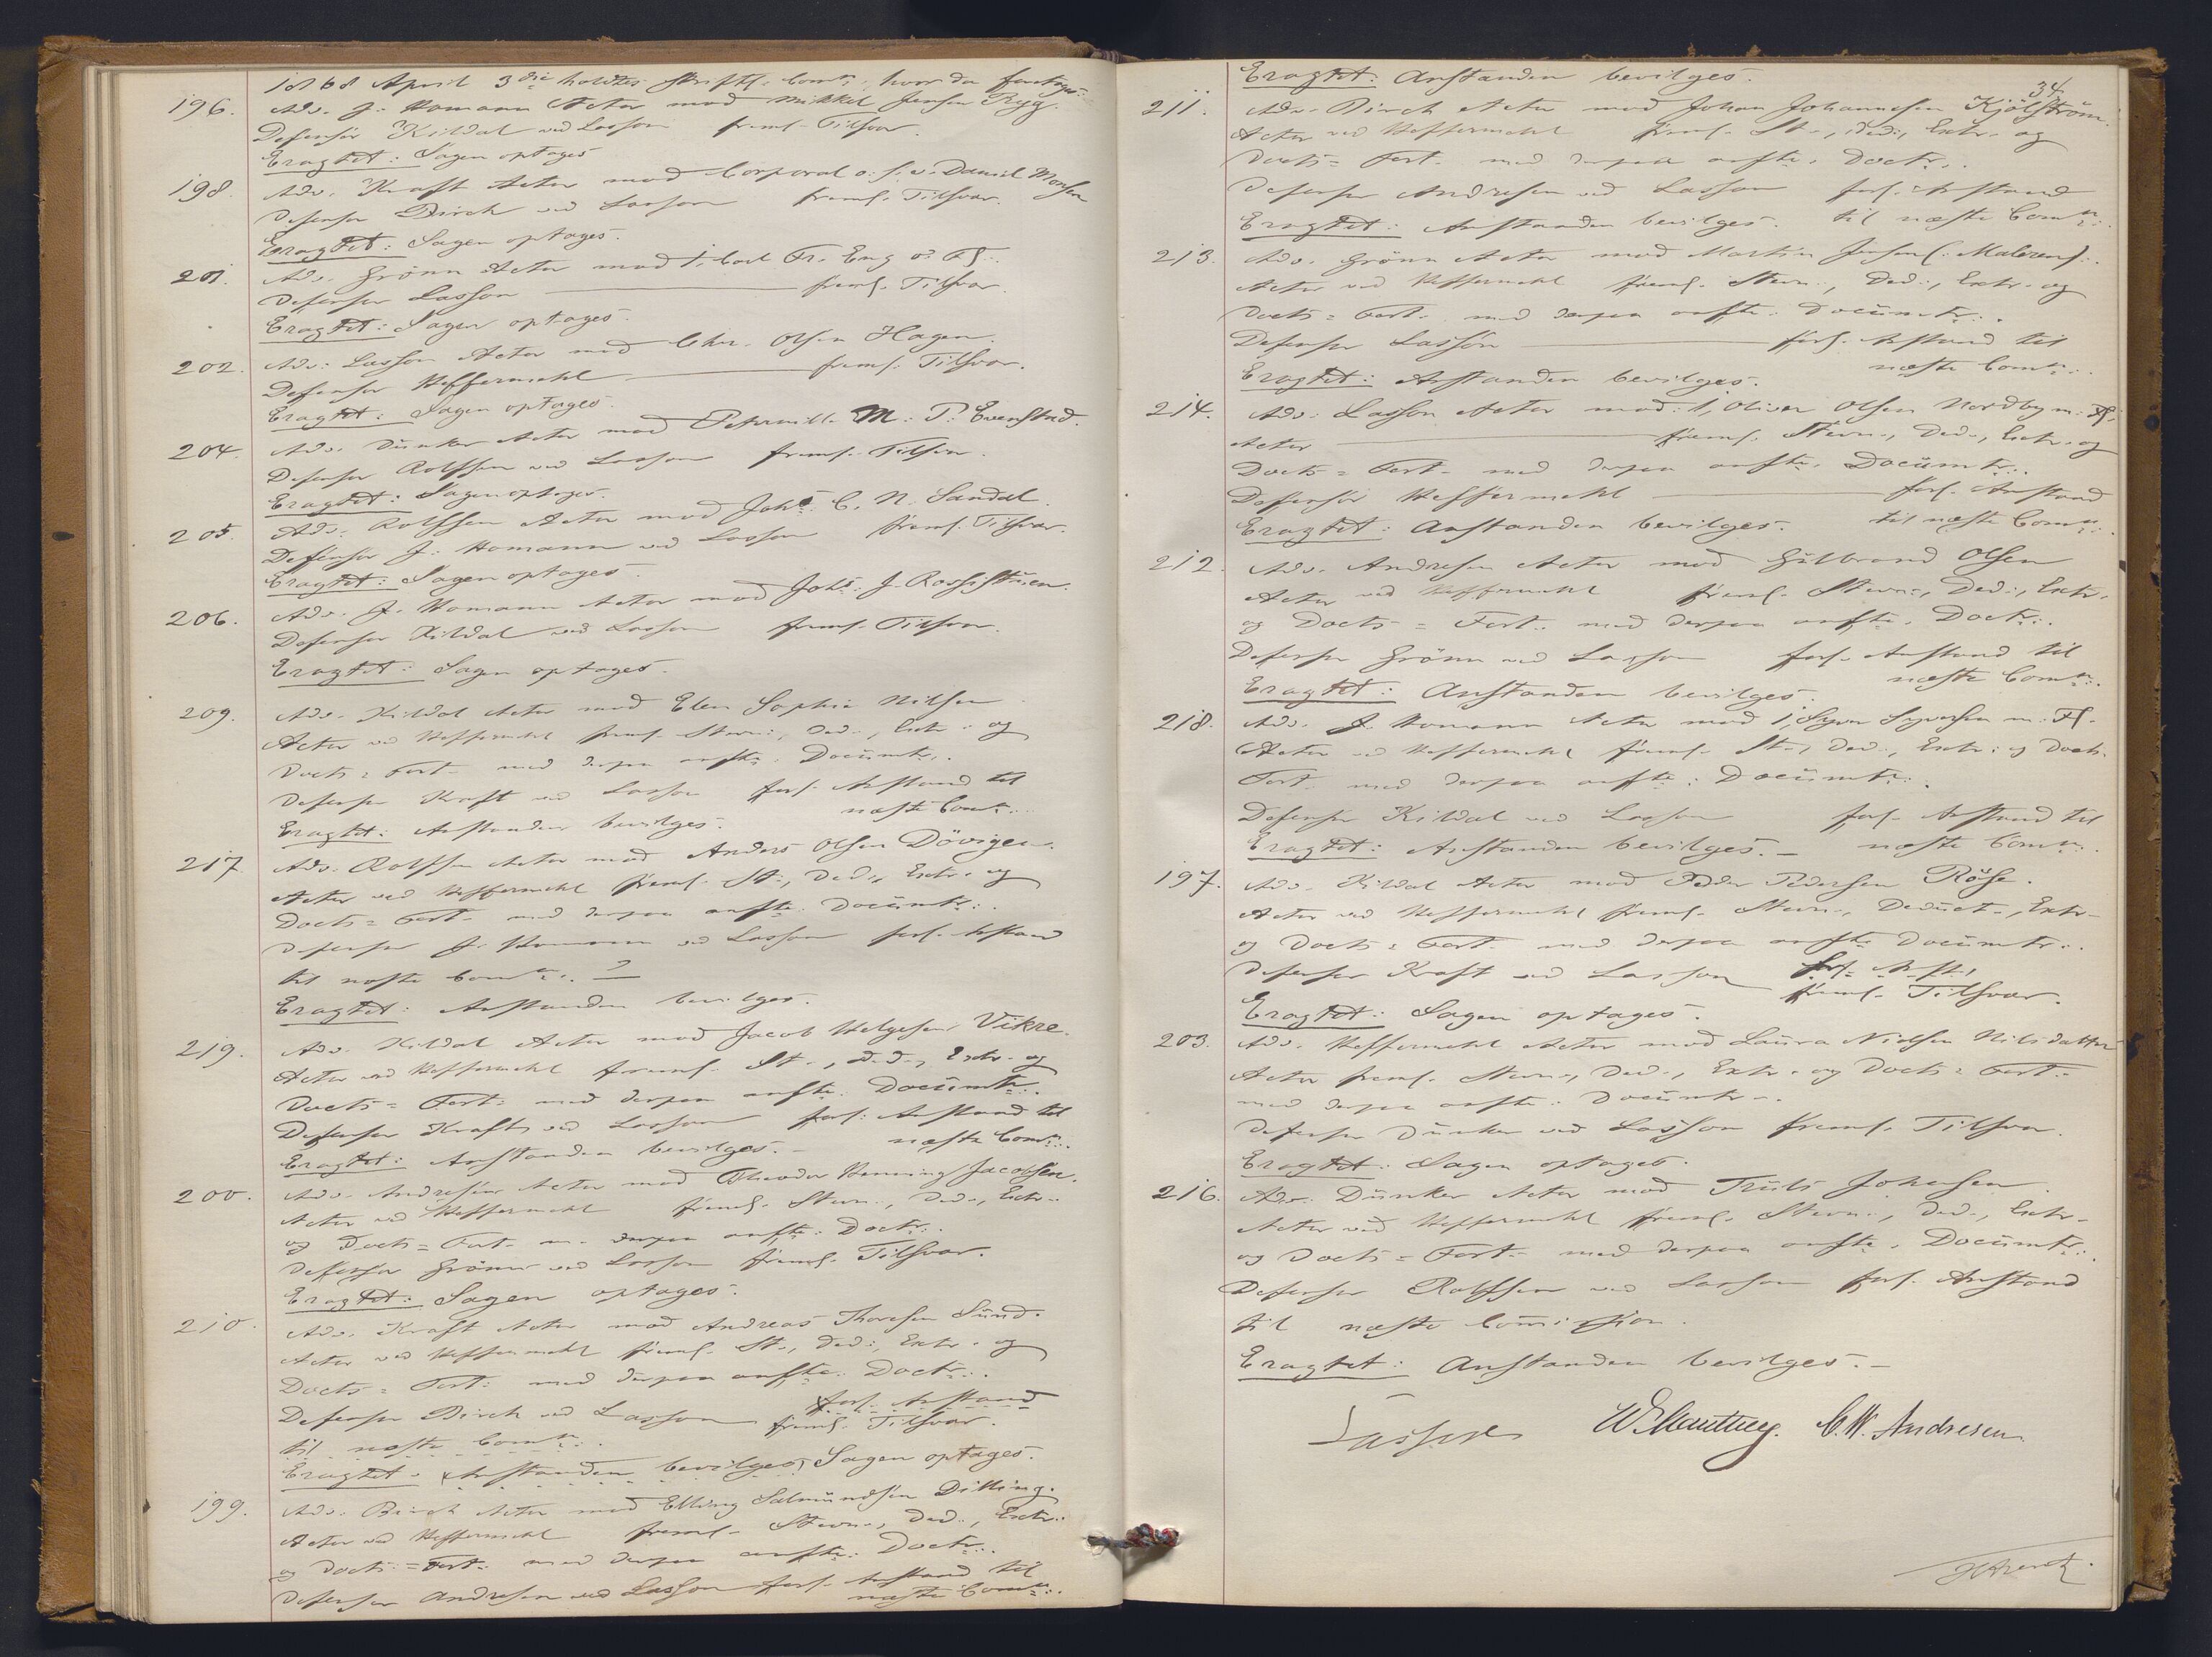 1868 April 3die holdtes skriftl. Comn, hvor da foretoges:
196. Adv. J. Homann Actor mod Mikkel Jensen Ryg.
Defensor Kildal ved Lasson freml. Tilsvar.
Eragtet: Sagen optages
198. Adv. Kraft Actor mod Corporal o. s. v. Daniel Monsen
Defensor Birch ved Lasson freml. Tilsvar.
Eragtet: Sagen optages.
201. Adv. Grönn Actor mod 1, Carl Fr. Eng o. Fl.
Defensor Lasson freml. Tilsvar.
Eragtet: Sagen optages.
202. Adv. Lasson Actor mod Chr. Olsen Hagen.
Defensor Heffermehl freml. Tilsvar.
Eragtet: Sagen optages.
204. Adv. Dunker Actor mod M. P. Evenstad.
Defensor Rolffsen ved Lasson freml. Tilsvar.
Eragtet: Sagen optages.
205. Adv. Rolffsen Actor mod Johs C. N. Sandal.
Defensor J. Homann ved Lasson freml. Tilsvar.
Eragtet: Sagen optages.
206. Adv. J. Homann Actor mod Johs. J.
Defensor Kildal ved Lasson freml. Tilsvar.
Eragtet: Sagen optages.
209. Adv. Kildal Actor mod Elen Sophie Nilsen
Actor ved Heffermehl freml. Stevn., Ded., Extr. og
Docts = Fort. med derpaa anfte. Documtr.
Defensor Kraft ved Lasson forl. Anstand til
næste Comn.
Eragtet: Anstanden bevilges.
217 Adv. Rolffsen Actor mod Anders Olsen Dövigen.
Actor ved Heffermehl freml. St., Ded., Extr. og
Docts = Fort. med derpaa anfte. Documtr.
Defensor J. Homann ved Lasson forl. Anstand
til næste Comn. ?
Eragtet: Anstanden bevilges.
219. Adv. Kildal Actor mod Jacob Helgesen Vikre.
Actor ved Heffermehl freml. St., Ded., Extr. og
Docts = Fort. med derpaa anfte. Documtr.
Defensor Kraft ved Lasson forl. Anstand til
næste Comn.
Eragtet: Anstanden bevilges.
200. Adv. Andresen Actor mod Theodor Henning Jacobsen.
Actor ved Heffermehl freml. Stevn., Ded., Extr.
og Docts = Fort. m. derpaa anfte. Doctr.
Defensor Grönn ved Lasson freml. Tilsvar.
Eragtet: Sagen optages.
210. Adv. Kraft Actor mod Andreas Thoresen Sund.
Actor ved Heffermehl freml. St., Ded., Extr. og
Docts = Fort. med derpaa anfte. Doctr.
Defensor Birch ved Lasson forl. Anstand
freml. Tilsvar.
til næste Comn.
Eragtet: Anstanden bevilges, Sagen optages.
199. Adv. Birch Actor mod Elling Salmundsen Dilling.
Actor ved Heffermehl freml. Stevn., Ded., Extr.
og Docts = Fort. med derpaa anfte. Doctr.
Defensor Andresen ved Lasson forl. Anstand til
næste Comn.
34.
Eragtet: Anstanden bevilges.
211. Adv. Birch Actor mod Johan Johannesen Kjölström.
Actor ved Heffermehl freml. St., Ded., Extr. og
Docts = Fort. med derpaa anfte. Doctr.
Defensor Andresen ved Lasson forl. Anstand
til næste Comn.
Eragtet: Anstanden bevilges.
213. Adv. Grönn Actor mod Martin Jensen (Maleren).
Actor ved Heffermehl freml. Stevn., Ded., Extr. og
Docts = Fort. med derpaa anfte. Documtr.
Defensor Lasson forl. Anstand til
næste Comn.
Eragtet: Anstanden bevilges.
214. Adv. Lasson Actor mod 1, Oliver Olsen Nordby m. Fl.
Actor freml. Stevn., Ded., Extr. og
Docts = Fort. med derpaa anfte. Documtr.
Defensor Heffermehl forl. Anstand
til næste Comn.
Eragtet: Anstanden bevilges.
212. Adv. Andresen Actor mod Gulbrand Olsen
Actor ved Heffermehl freml. Stevn., Ded., Extr.
og Docts = Fort. med derpaa anfte. Doctr.
Defensor Grönn ved Lasson forl. Anstand til
næste Comn.
Eragtet: Anstanden bevilges.
218. Adv. J. Homann Actor mod 1, Syver Syversen m. Fl.
Actor ved Heffermehl freml. St., Ded., Extr. og Docts.
Fort. med derpaa anfte. Documtr.
Defensor Kildal ved Lasson forl. Anstand til
næste Comn.
Eragtet: Anstanden bevilges. –
197. Adv. Kildal Actor mod Peder Pedersen Röse.
Actor ved Heffermehl freml. Stevn., Deduct., Extr.
og Docts = Fort. med derpaa anfte Documtr.
Defensor Kraft ved Lasson forl. Anst.
freml. Tilsvar.
Eragtet: Sagen optages.
203. Adv. Heffermehl Actor mod Laura Nielsen Nilsdatter
Actor freml. Stevn., Ded., Extr. og Docts = Fort.
med derpaa anfte. Documtr.
Defensor Dunker ved Lasson freml. Tilsvar.
Eragtet: Sagen optages.
216. Adv. Dunker Actor mod Truls Johnsen.
Actor ved Heffermehl freml. Stevn., Ded., Extr.
og Docts = Fort. med derpaa anfte. Documtr.
Defensor Rolffsen ved Lasson forl. Anstand
til næste Commission.
Eragtet: Anstanden bevilges. –
Lasson C. W. Andresen